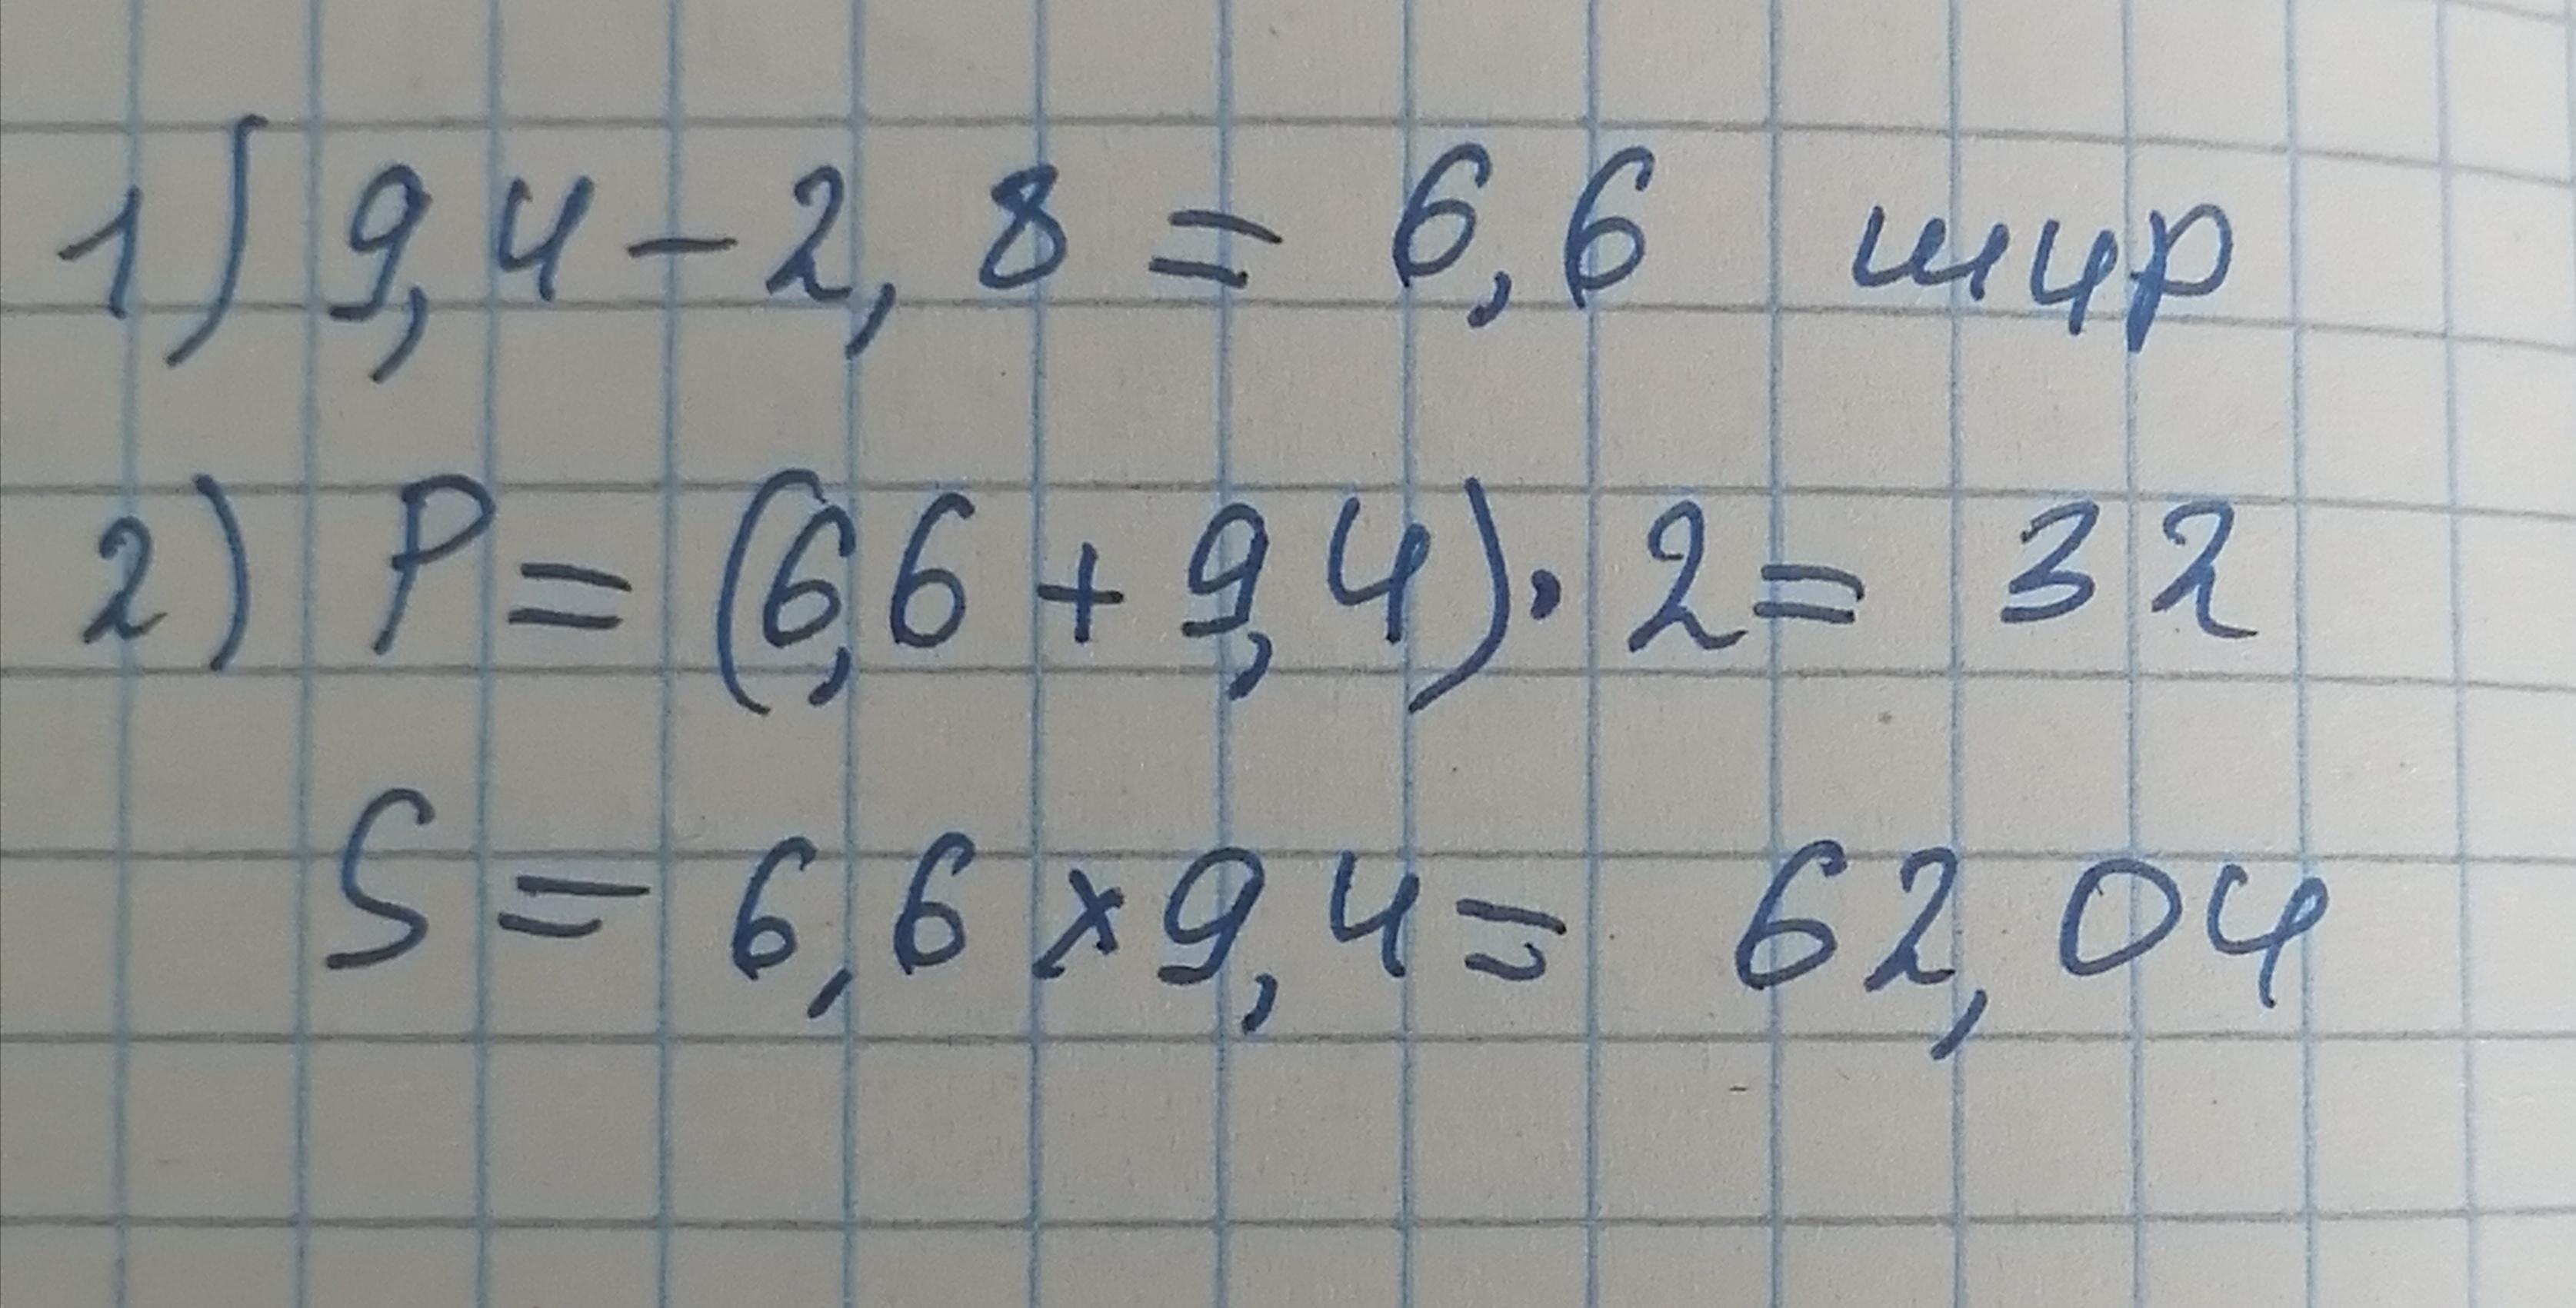 1) 9,4 - 2,8 = 6,6 шир
2) P = (6,6 + 9,4) · 2 = 32
S = 6,6 × 9,4 = 62,04